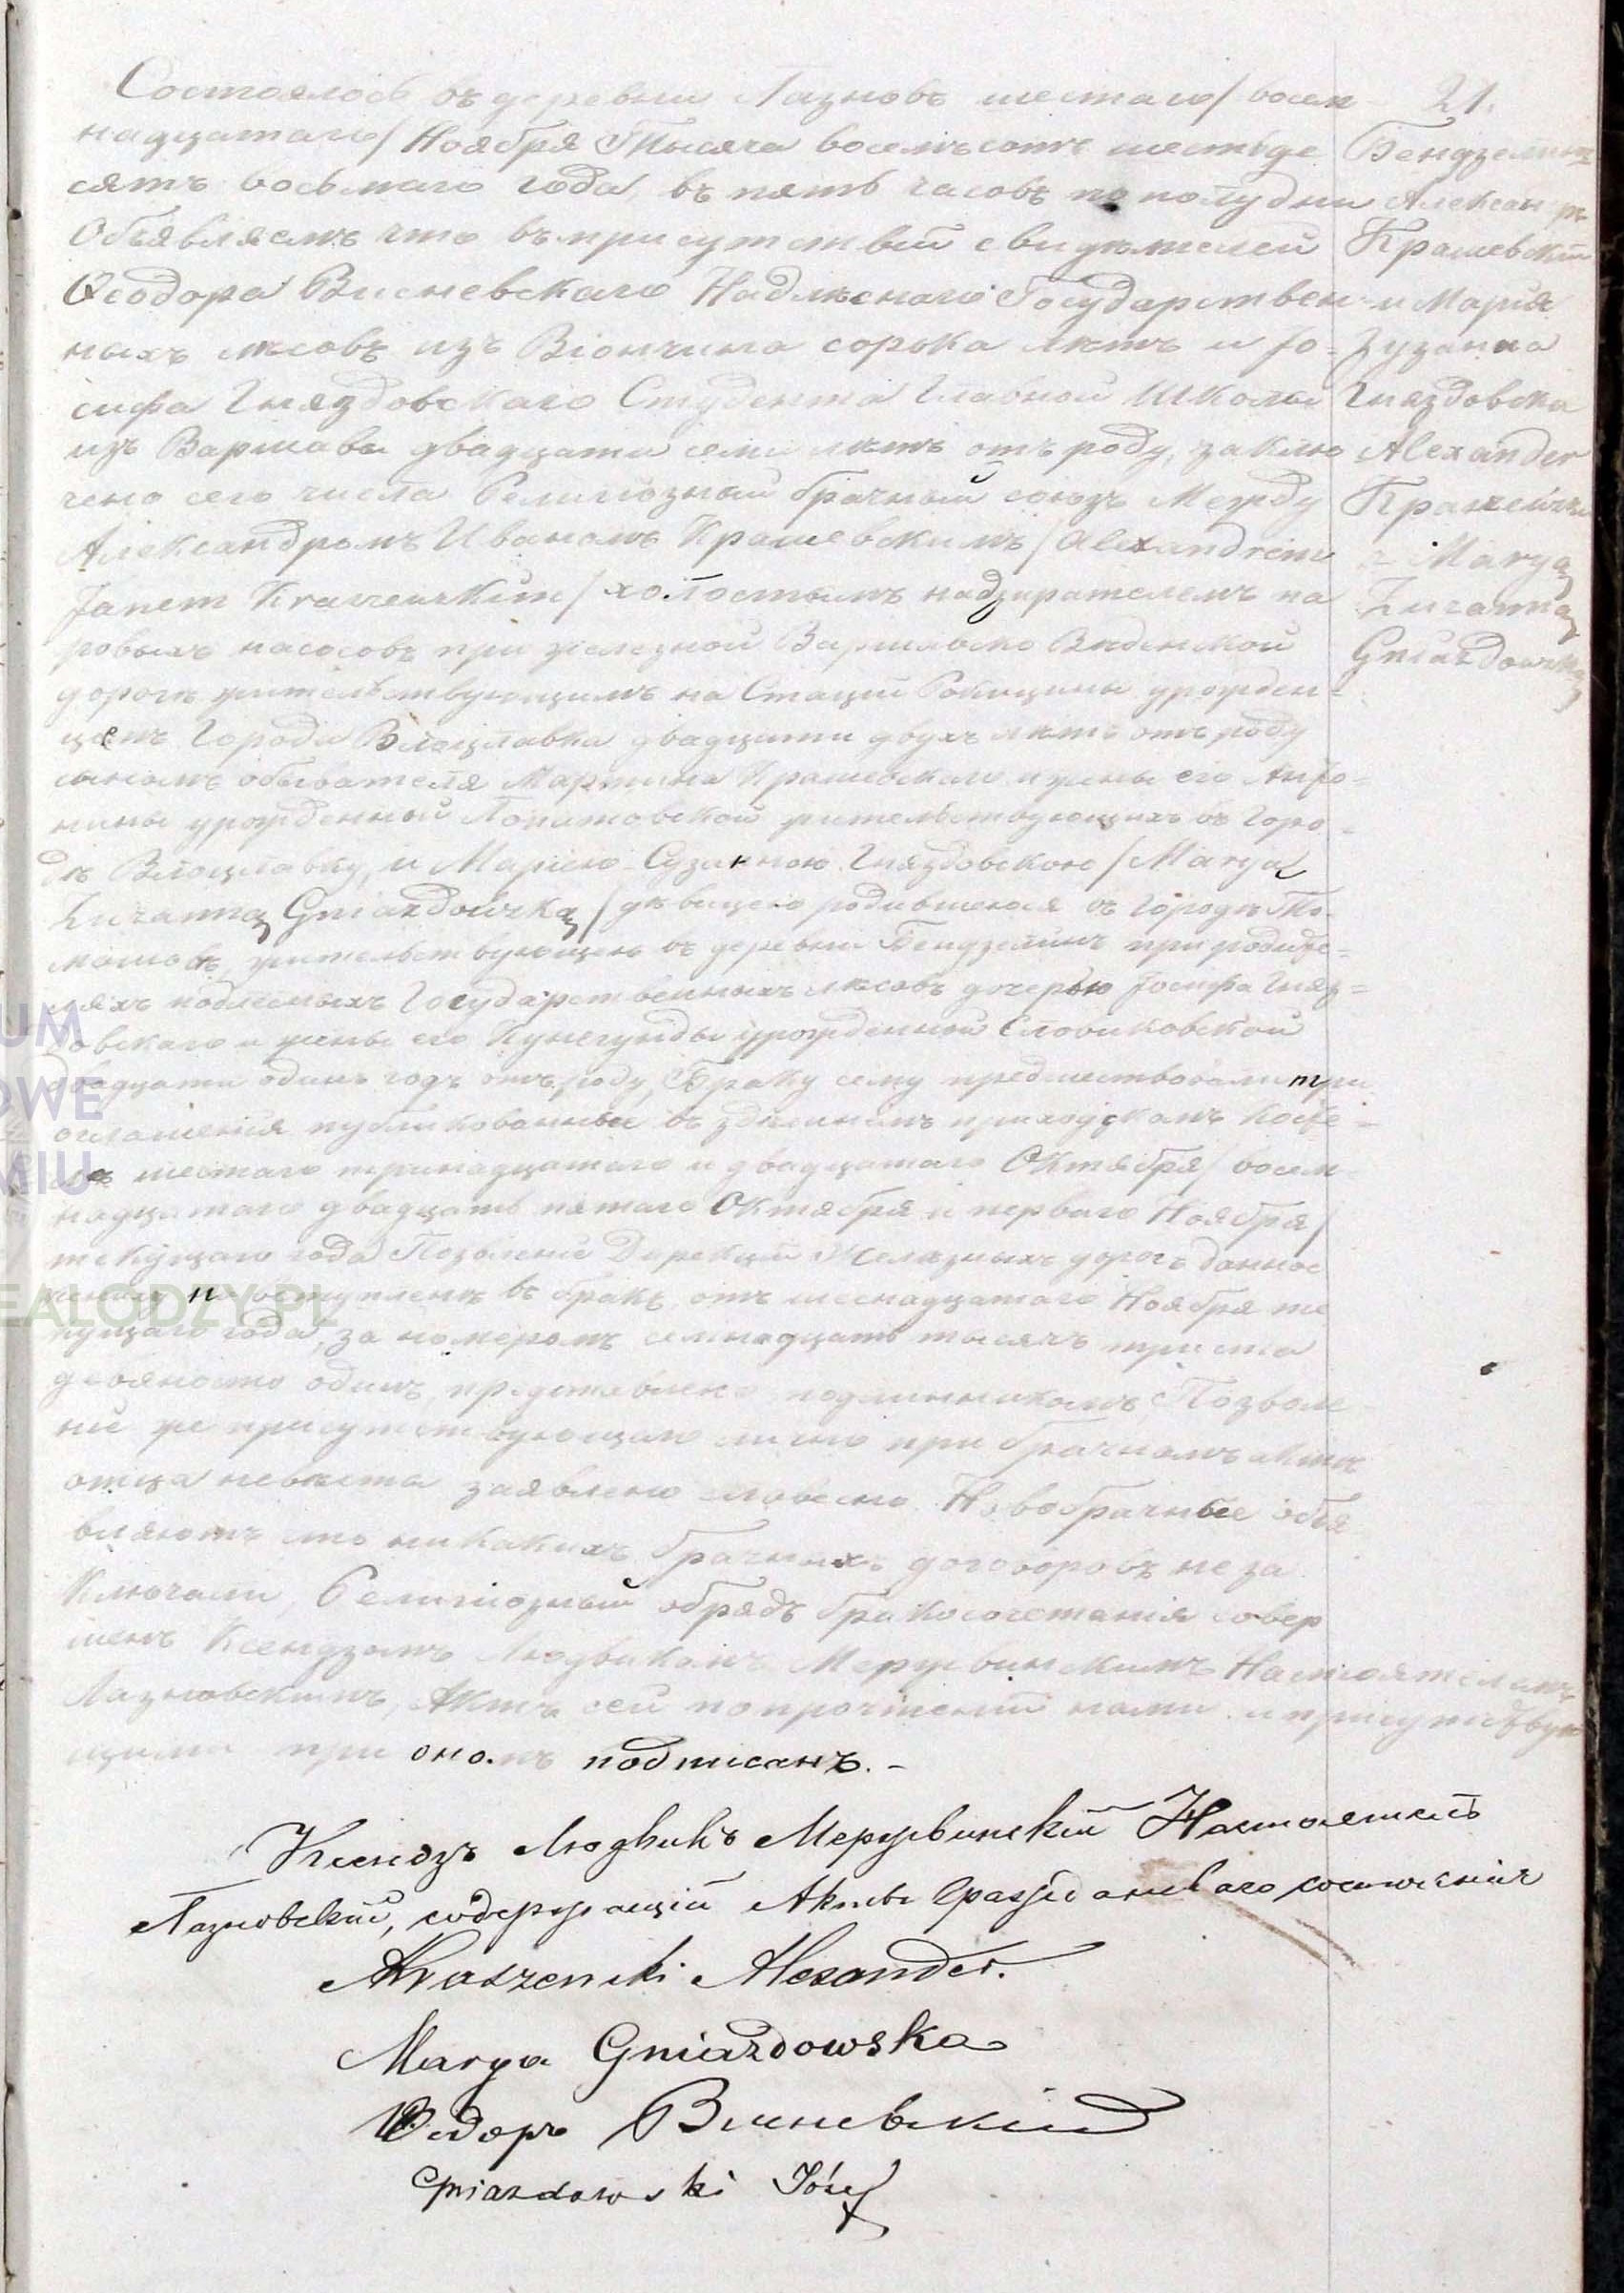 Состоялось въ деревни Лазновъ шестаго/восем
надцатаго/Ноября Тысяча восемьсотъ шестьде
сятъ восьмаго года, въ пять часовъ по полудни
Объявляемъ что въ присутствіи свидѣтелей
Ѳеодора Висневскаго Надлѣснаго Государствен
ныхъ лѣсовъ изъ Віончина сорока лѣтъ и Jо-
сифа Гняздовскаго Студента Главной Школы
изъ Варшавы двадцати семи лѣтъ отъ роду, заклю
чено сего числа Религіозный брачный союзъ Между
Александромъ Иваномъ Крашевскимъ/Alexandrem
Janem Kraszewskim/холостымъ надзирателемъ па
ровыхъ насосовъ при железной Варшавско Вѣденской
дорогѣ жительствующимъ на Стаціи Рокицины урожден-
цемъ Города Влоцлавка двадцати двухъ лѣтъ отъ роду
сыномъ обывателя Мартина Крашевскаго и жены его Анто-
нины урожденной жительствующихъ въ Горо-
дѣ Влоцлавку, и Маріею Сузанною Гняздовскою/Maryą
Zuzanną Gniazdowską/дѣвицею родившеюся въ Городѣ То-
машовѣ, жительствующею въ деревни Бендзелинъ при родите-
ляхъ Государственныхъ лѣсовъ дочерью Jосифа Гняз-
довскаго и жены его Кунегунды урожденной Словиковской
двадцати одинъ годъ отъ роду, Браку сему предшествовали три
оглашенія публикованные въ здешнемъ приходскомъ Косте-
лѣ шестаго тринадцатаго и двадцатаго Октября/восем
надцатаго двадцать пятаго Октября и перваго Ноября/
текущаго года Позволеніе Дирекціи Желѣзныхъ дорогъ данное
жениху на вступленіе въ бракъ, отъ шеснадцатаго Ноября те
кущаго года, за номеромъ семнадцать тысячъ триста
девяносто одинъ, представлено подлинникомъ, Позволе
ніе же присутствующаго лично при брачномъ актѣ
отца невѣсты заявлено словесно. Новобрачные объя
вляютъ что никакихъ брачныхъ договоровъ не за
ключали, Религіозный обрядъ бракосочетанія совер
шенъ Ксендзомъ Людвикомъ Мержвинскимъ Настоятелемъ
Лазновскимъ, Актъ сей по прочтеніи нами и присутствую
щими при ономъ подписанъ.-
Ксендзъ Людвикъ Мержвинскій Настоятель
Лазновскій, содержащій Акты Гражданскаго состоянія
Kraszewski Alexander.
Marya Gniazdowska
Ѳедоръ Висневскій
Gniazdowski Józef
21.
Бендзелинъ
Александръ
Крашевскій
и Марія
Зузанна
Гняздовска
Alexander
z Maryą
Zuzanną
Gniazdowską